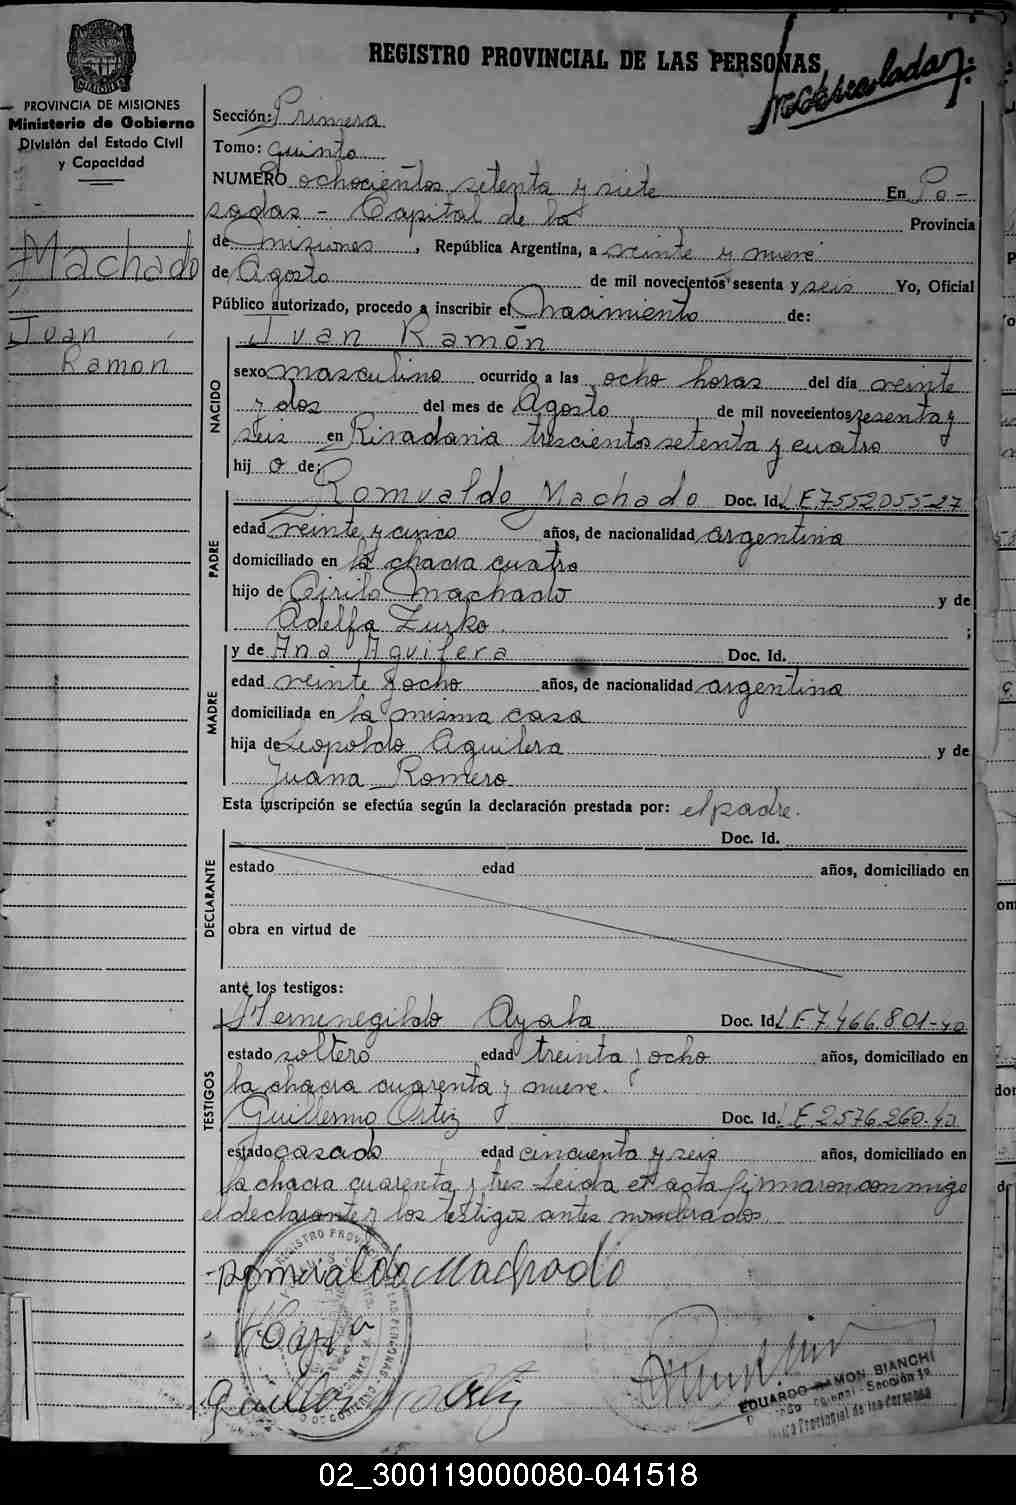 REGISTRO PROVINCIAL DE LAS PERSONAS
PROVINCIA DE MISIONES
Ministerio de Gobierno
División del Estado Civil
y Capacidad
Machado
Juan
Ramon
Sección: Primera
Tomo: quinto
NUMERO ochocientos setenta y siete En Po-
sadas - Capital de la Provincia
de Misiones, República Argentina, a veinte y nueve
de Agosto de mil novecientos sesenta y seis Yo, Oficial
Público autorizado, procedo a inscribir el Nacimiento de:
Juan Ramón
NACIDO
sexo masculino ocurrido a las ocho horas del día veinte
y dos del mes de Agosto de mil novecientos sesenta y
seis en Rivadavia trescientos setenta y cuatro
hij o de:
PADRE
Romualdo Machado Doc. Id. L E 7552055-27
edad veinte y cinco años, de nacionalidad argentina
domiciliado en la chacra cuatro
hijo de Cirilo Machado y de
Adelfa Zusko ;
MADRE
y de Ana Aguilera Doc. Id.
edad veinte y ocho años, de nacionalidad argentina
domiciliada en la misma casa
hija de Leopoldo Aguilera y de
Juana Romero
Esta inscripción se efectúa según la declaración prestada por: el padre.
DECLARANTE
Doc. Id.
estado edad años, domiciliado en
obra en virtud de
ante los testigos:
TESTIGOS
Hermenegildo Ayala Doc. Id. L E 7.466.801-40
estado soltero edad treinta y ocho años, domiciliado en
la chacra cuarenta y nueve.
Guillermo Ortiz Doc. Id. L E 2576.260-40
estado casado edad cincuenta y seis años, domiciliado en
la chacra cuarenta y tres Leida el acta firmaron conmigo
el declarante y los testigos antes nombrados.
Romualdo Machado
Ortiz
EDUARDO RAMON BIANCHI
Sección 1ª
Provincial de las Personas
02_300119000080-041518